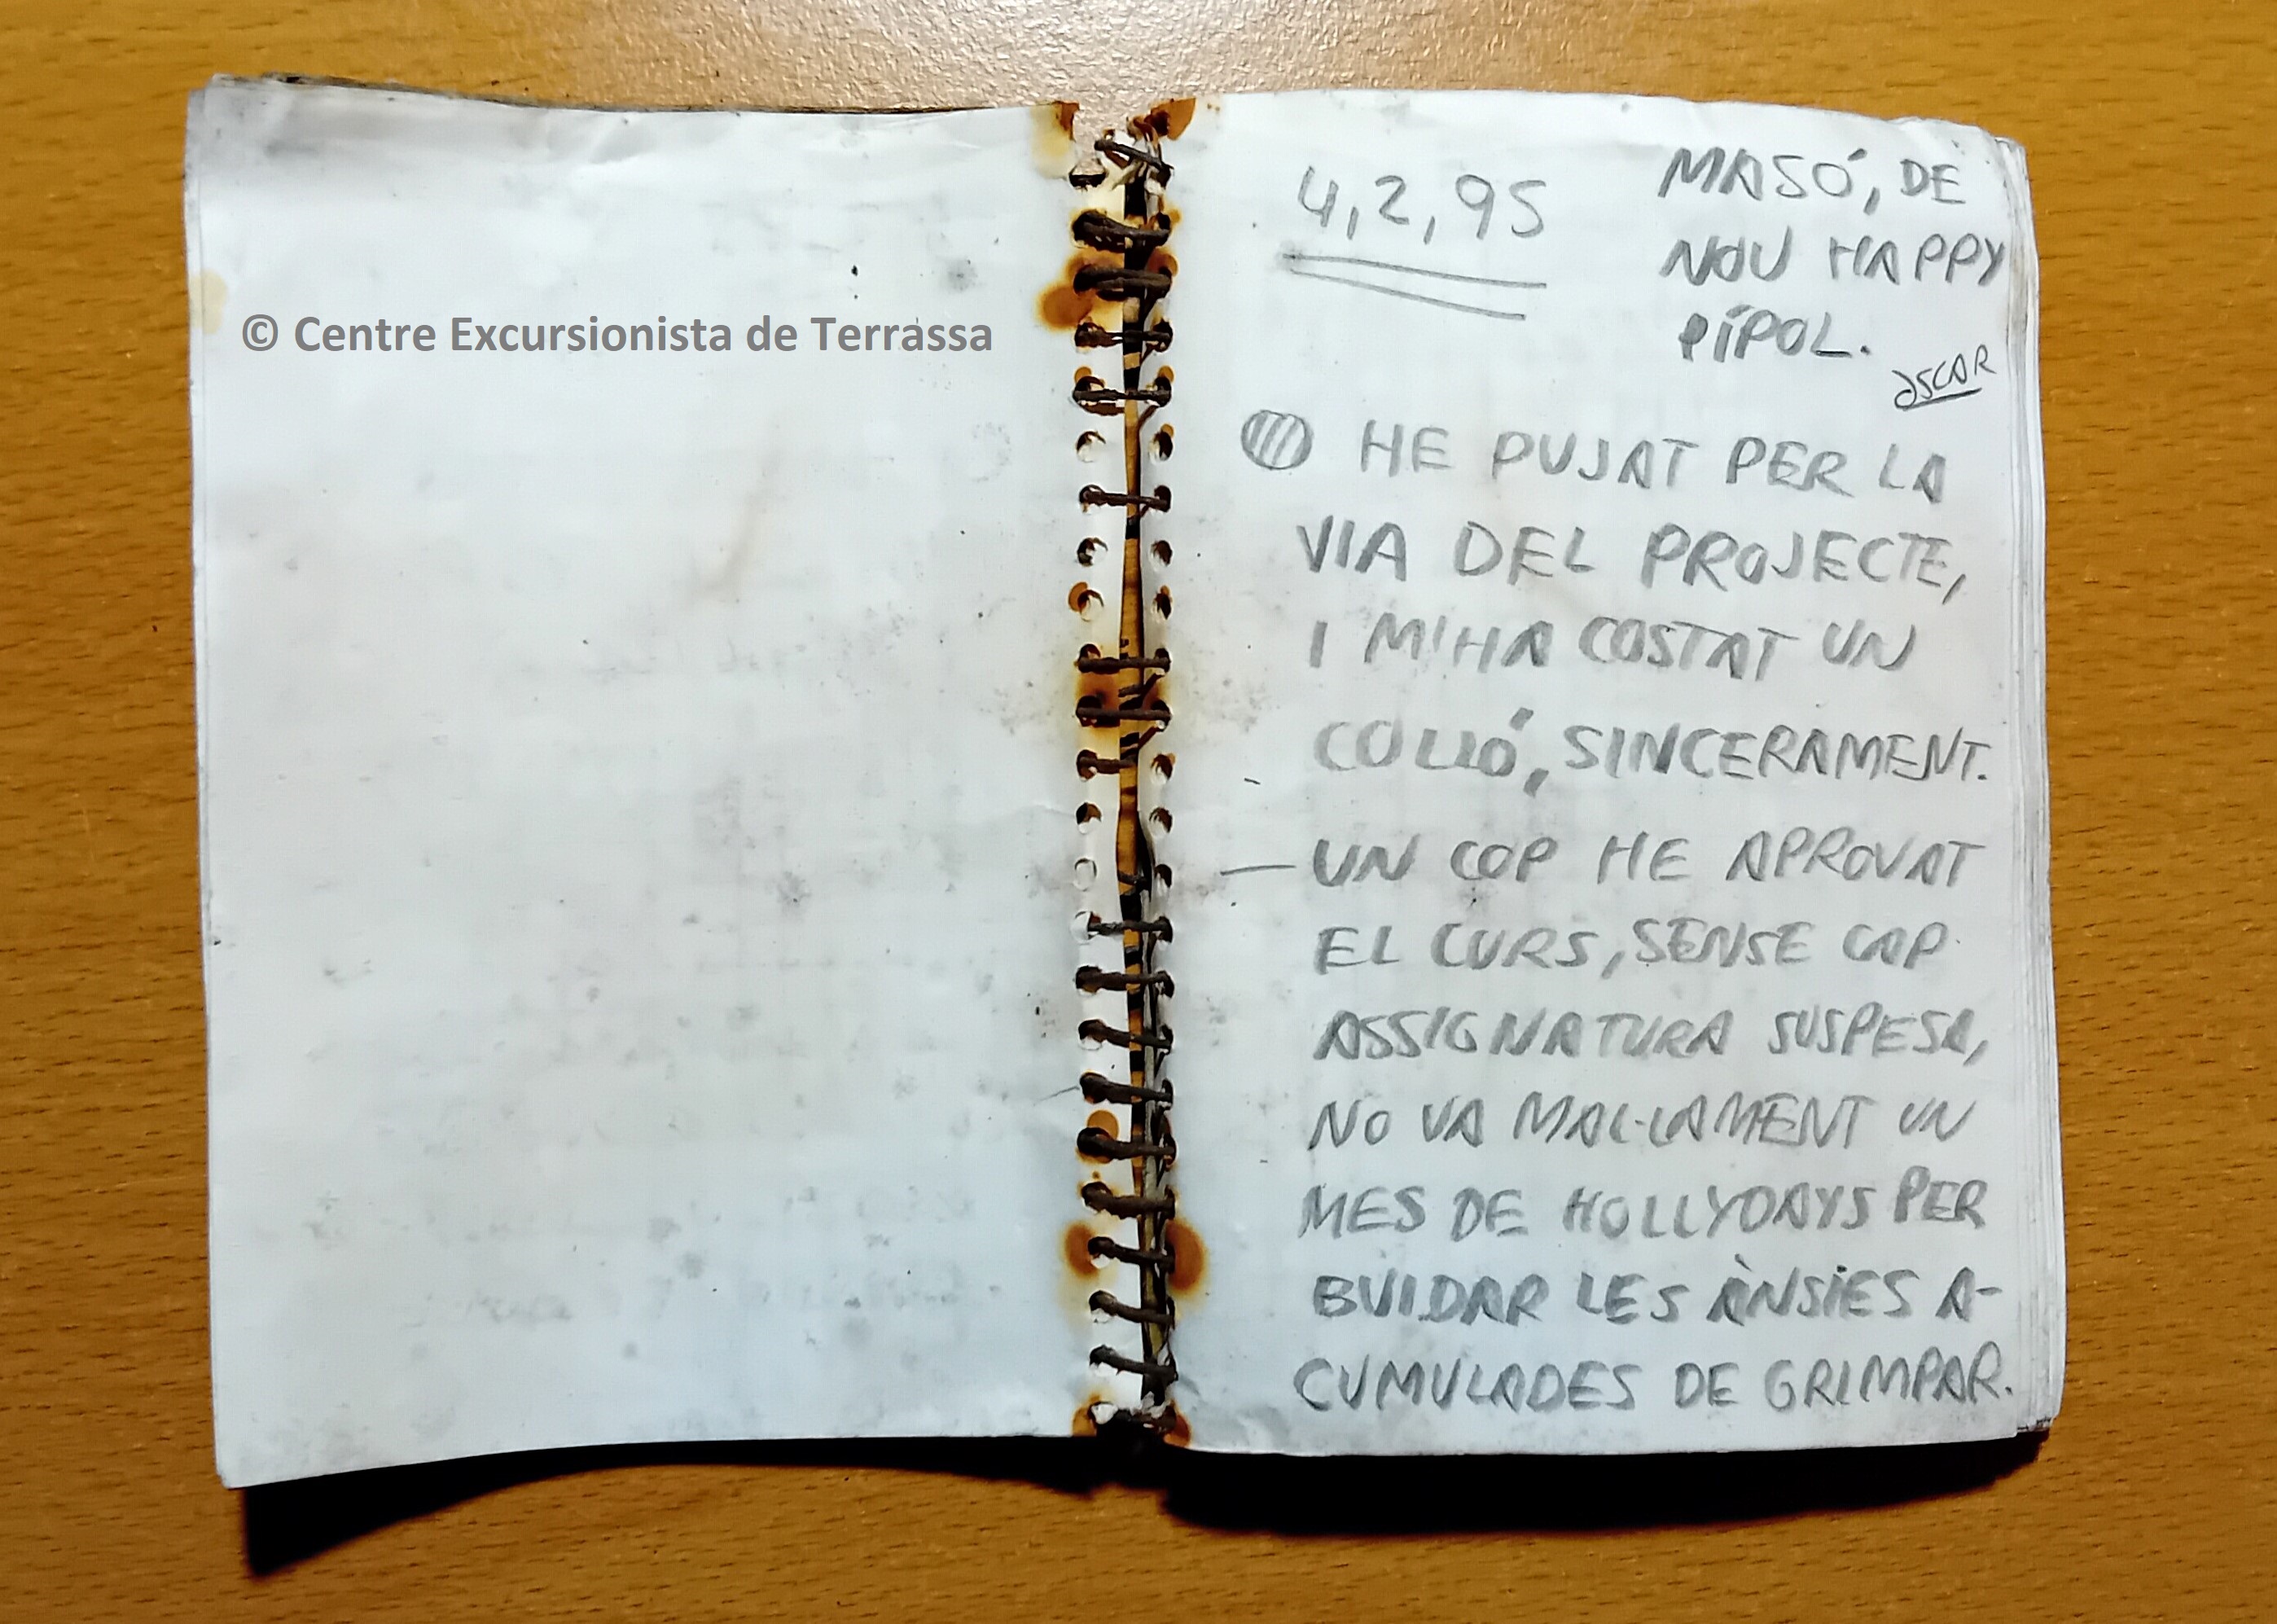 © Centre Excursionista de Terrassa
4,2,95
MASÓ, DE
NOU HAPPY
PÍPOL.
OSCAR
HE PUJAT PER LA
VIA DEL PROJECTE,
I M'HA COSTAT UN
COLLÓ, SINCERAMENT.
— UN COP HE APROVAT
EL CURS, SENSE CAP
ASSIGNATURA SUSPESA,
NO VA MAL·LAMENT UN
MES DE HOLLYDAYS PER
BUIDAR LES ÀNSIES A-
CUMULADES DE GRIMPAR.